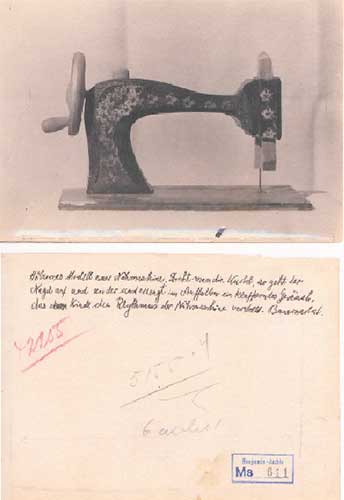 Hölzernes Modell einer Nähmaschine. Dreht man die Kurbel, so geht der
Nagel auf und nieder und erzeugt im Auffallen ein klapperndes Geräusch,
das dem Kinde den Rhythmus der Nähmaschine vorstellt. Bauernarbeit.
2255
5155
Benjamin-Archiv
Ms 611